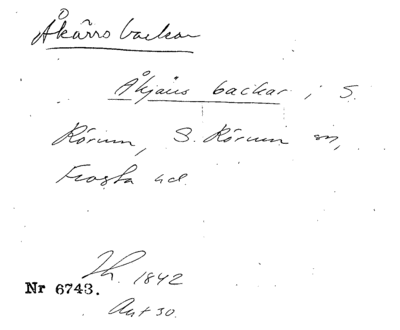 Åkärrs backar
Åkjäns backar i S.
Rörum, S. Rörum sn,
Frosta hd.
Th. 1842
Nr 6743.
Ant 30.